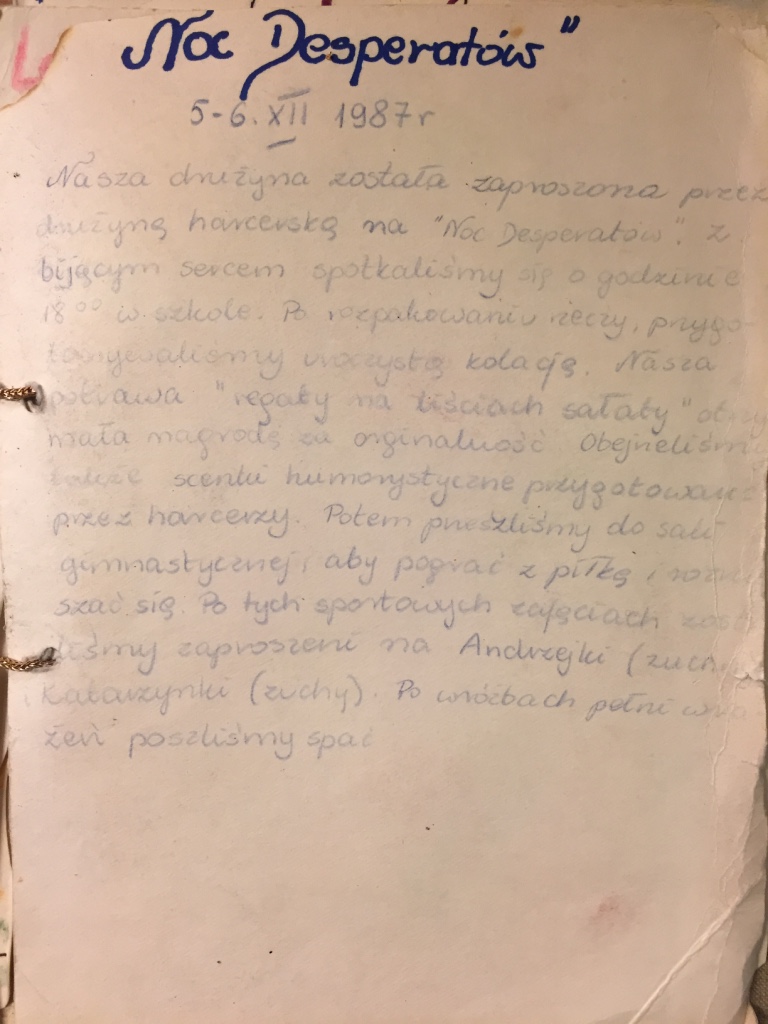 Noc Desperatów"
5-6. XII 1987r
Nasza drużyna została zaproszona przez
drużynę harcerską na "Noc Desperatów". Z
bijącym sercem spotkaliśmy się o godzinie
18⁰⁰ w szkole. Po rozpakowaniu rzeczy, przygo-
towywaliśmy uroczystą kolację. Nasza
potrawa "regaty na liściach sałaty" otrzy
mała nagrodę za orginalność Obejreliśmy
także scenki humorystyczne przygotowane
przez harcerzy. Potem przeszliśmy do sali
gimnastycznej, aby pograć z piłką i
szać się. Po tych sportowych zajęciach
liśmy zaproszeni na Andrzejki (zuchy
Katarzynki (zuchy). Po wróżbach pełni wra
żeń poszliśmy spać